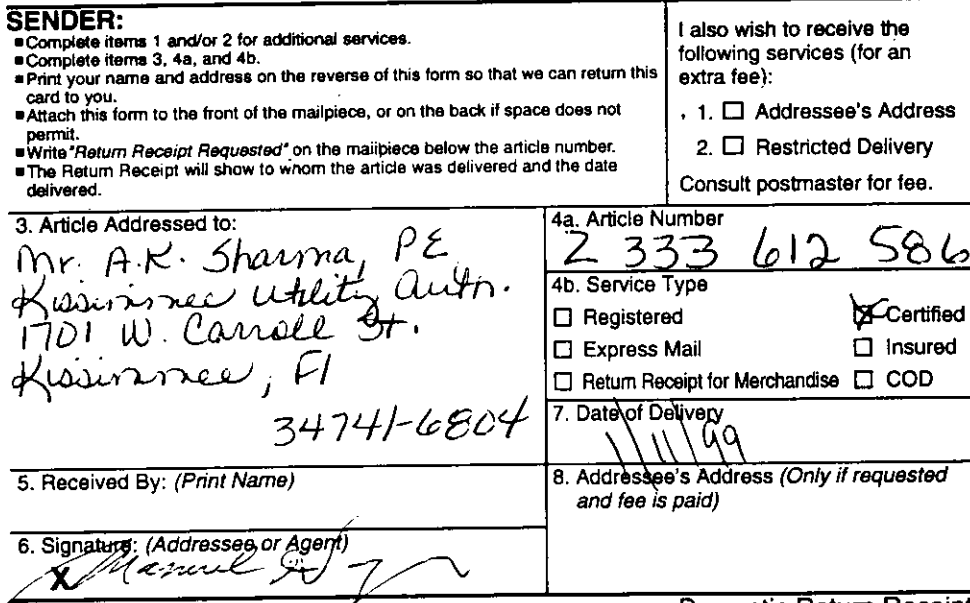 SENDER:
■Complete items 1 and/or 2 for additional services.
■Complete items 3, 4a, and 4b.
■Print your name and address on the reverse of this form so that we can return this
card to you.
■Attach this form to the front of the mailpiece, or on the back if space does not
permit.
■Write "Return Receipt Requested" on the mailpiece below the article number.
■The Return Receipt will show to whom the article was delivered and the date
delivered.
I also wish to receive the
following services (for an
extra fee):
1. ☐ Addressee's Address
2. ☐ Restricted Delivery
Consult postmaster for fee.
3. Article Addressed to:
Mr. A.K. Sharma, PE
Kissimmee Utility Auth.
1701 W. Carroll St.
Kissimmee, Fl
34741-6804
4a. Article Number
Z 333 612 586
4b. Service Type
☐ Registered
☒ Certified
☐ Express Mail
☐ Insured
☐ Return Receipt for Merchandise
☐ COD
7. Date of Delivery
1/11/99
5. Received By: (Print Name)
8. Addressee's Address (Only if requested
and fee is paid)
6. Signature: (Addressee or Agent)
X Manuel